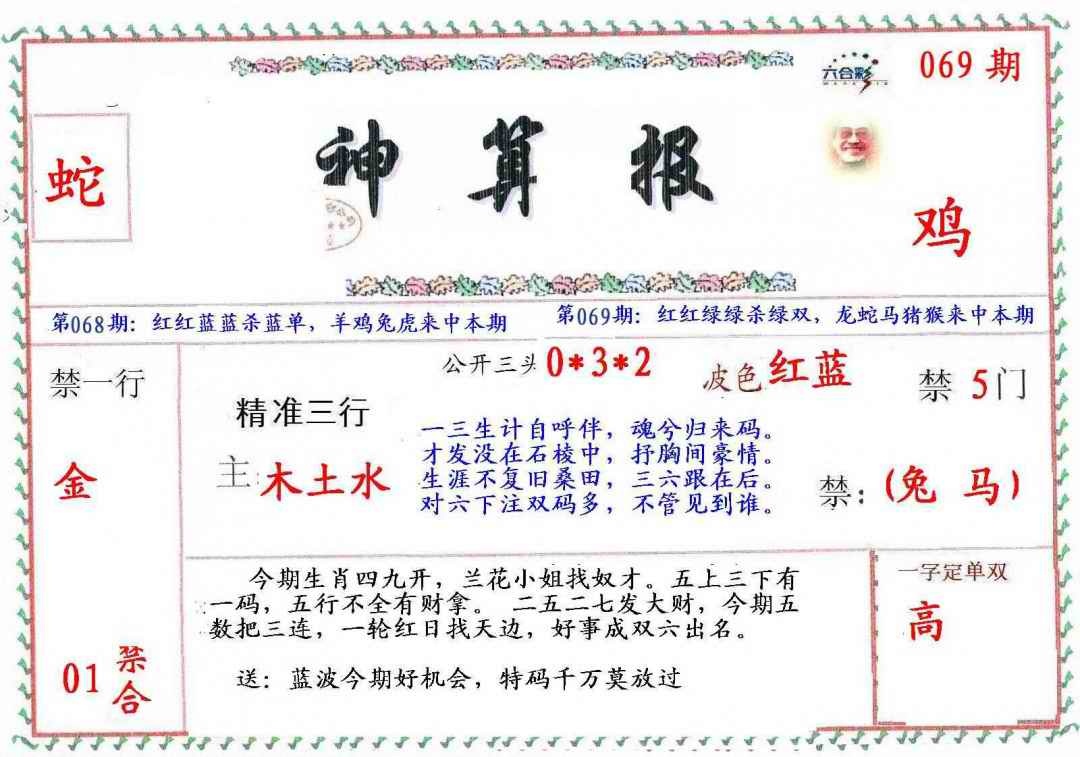 六合彩
069 期
蛇
神算报
鸡
第068期：红红蓝蓝杀蓝单，羊鸡兔虎来中本期
第069期：红红绿绿杀绿双，龙蛇马猪猴来中本期
禁一行
金
01 禁合
公开三头 0*3*2
波色 红蓝
禁 5 门
精准三行
主: 木土水
一三生计自呼伴，魂兮归来码。
才发没在石棱中，抒胸间豪情。
生涯不复旧桑田，三六跟在后。
对六下注双码多，不管见到谁。
禁：(兔 马)
今期生肖四九开，兰花小姐找奴才。五上三下有
一码，五行不全有财拿。 二五二七发大财，今期五
数把三连，一轮红日找天边，好事成双六出名。
送：蓝波今期好机会，特码千万莫放过
一字定单双
高